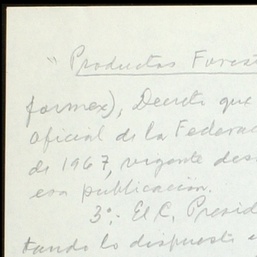 " Productos Forest
formex), Decreto que
oficial de la Federac
de 1967, vigente des
esa publicación.
3º.- El C. Presid
tando lo dispuesto e